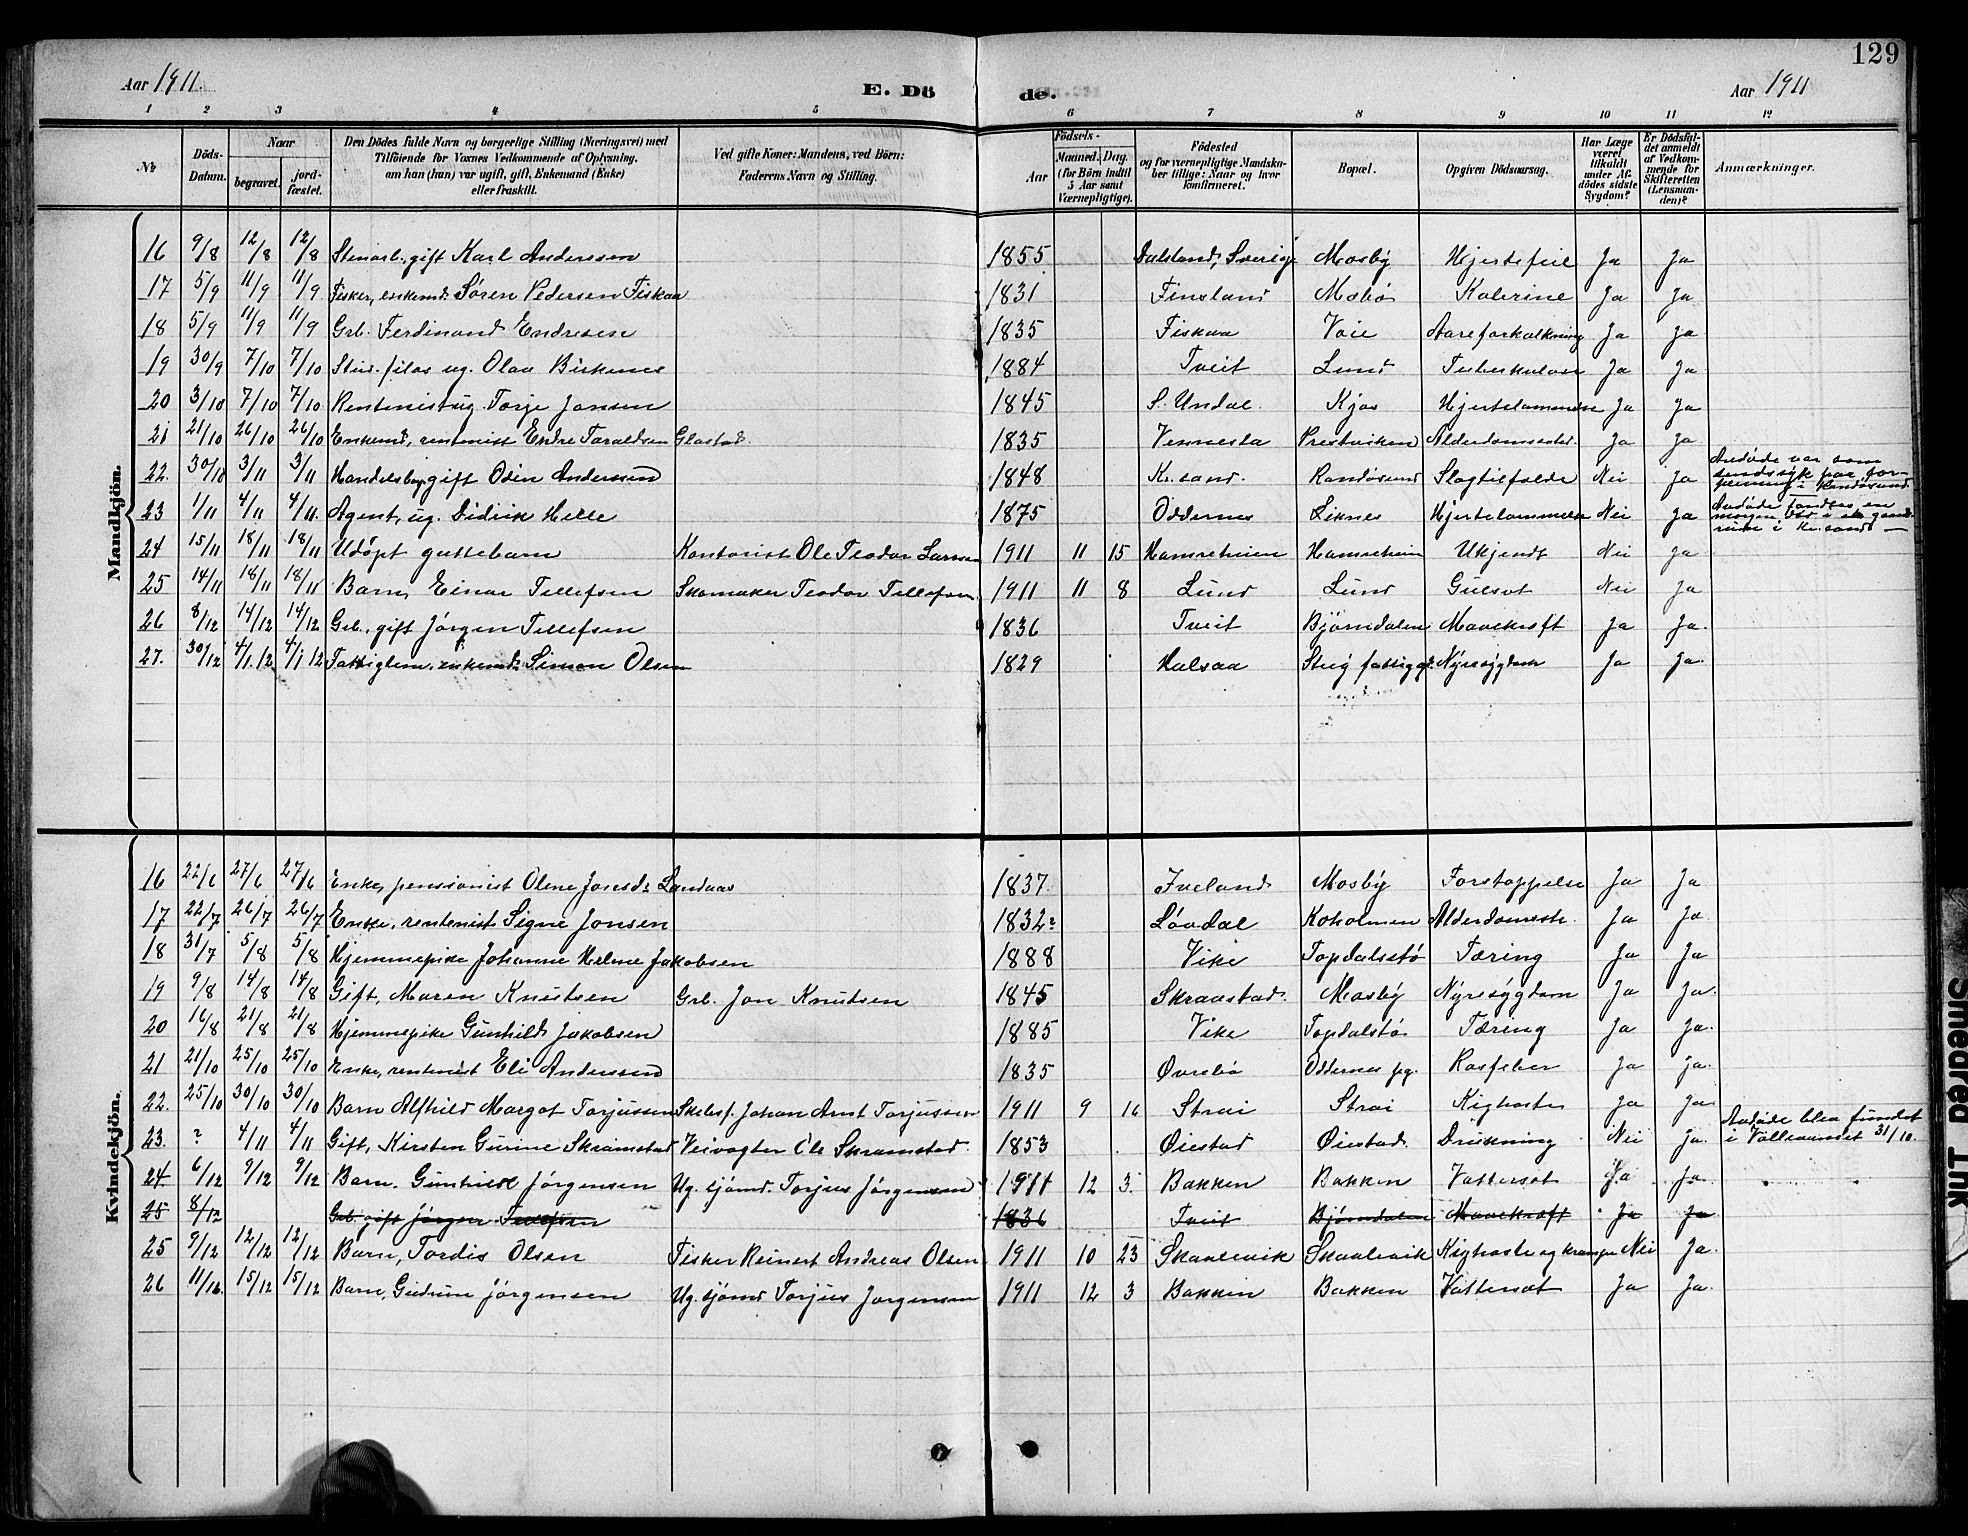 129
Aar 1911. E. Dö de. Aar 1911
1 2 3 4 5 6 7 8 9 10 11 12
No. Döds-Datum. Naar begravet. jordfæstet. Den Dödes fulde Navn og borgerlige Stilling (Næringsvei) med Tilföiende for Voxnes Vedkommende af Oplysning, om han (hun) var ugift, gift, Enkemand (Enke) eller fraskilt. Ved gifte Koner: Mandens, ved Börn: Faderens Navn og Stilling. Födsels- Aar Maaned. Dag. (for Börn indtil 5 Aar samt Værnepligtige). Födested og for værnepligtige Mandskaber tillige: Naar og hvor konfirmeret. Bopæl. Opgiven Dödsaarsag. Har Læge været tilkaldt under Afdödes sidste Sygdom? Er Dödsfaldet anmeldt af Vedkommende for Skifteretten (Lensmanden)? Anmærkninger.
Mandkjön.
16 9/8 12/8 12/8 Stenarb., gift Karl Anderssen 1855 Dalsland, Sverige Mosby Hjertefeil Ja Ja
17 5/9 11/9 11/9 Fisker, enkemd. Søren Pedersen Fiskaa 1831 Finsland Mæbø Kolerine Ja Ja
18 5/9 11/9 11/9 Grb. Ferdinand Endresen 1835 Fiskaa Voie Aareforkalkning Ja Ja
19 30/9 7/10 7/10 Stud. filos ug. Olav Birkenes 1884 Tveit Lund Tuberkulose Ja Ja
20 3/10 7/10 7/10 Rentenist ug. Torje Jonsen 1845 S. Undal. Kjos Hjertelammelse Ja Ja
21 21/10 26/10 26/10 Enkemd, rentenist Endre Taraldsen Glastad. 1835 Vennesla Prestviken Alderdomssvkt. Ja Ja
22. 30/10 3/11 3/11 Handelsbg. gift Odin Anderssen 1848 Kr.sand. Randøsund Slagtilfælde Nei Ja Avdøde var som sindssyk paa forpleining i Randøsund.
23 1/11 4/11 4/11. Agent, ug. Didrik Helle 1875 Oddernes Liknes Hjertelammelse Nei Ja Avdøde fandtes en morgen død i et gaardsrum i Kr.sand. —
24 15/11 18/11 18/11 Udöpt guttebarn Kontorist Ole Teodor Larsen 1911 11 15 Hamreheien Hamreheien Ukjendt Nei Ja
25 14/11 18/11 18/11 Barn, Einar Tellefsen Skomaker Teodor Tellefsen 1911 11 8 Lund Lund Gulsot Nei Ja
26 8/12 14/12 14/12 Grb., gift Jörgen Tellefsen 1836 Tveit Bjørndalen Mavekræft Ja Ja.
27. 30/12 4/1.12 4/1.12 Fattiglem, enkemd. Simon Olsen 1829 Halsaa Strey fattiggd. Nyresygdom Ja Ja.
Kvindekjön.
16 22/6 27/6 27/6 Enke, pensionist Olene Josesd. Landaas 1837. Iveland Mosby Forstoppelse Ja Ja
17 22/7 26/7 26/7 Enke, rentenist Signe Jonsen 1832? Løvdal Koholmen Alderdomssv. Ja Ja.
18 31/7 5/8 5/8 Hjemmepike Johanne Helene Jakobsen 1888 Vike Topdalsstø Tæring Ja Ja
19 9/8 14/8 14/8 Gift, Maren Knutsen Grb. Jon Knutsen 1845 Skraastad. Mosby Nyresygdom Ja Ja.
20 16/8 21/8 21/8 Hjemmepike Gunhild Jakobsen 1885 Vike Topdalstø Tæring Ja Ja.
21 21/10 25/10 25/10 Enke, rentenist Eli Anderssen 1835 Øvrebø Oddernes pg. Rosfeber Ja ja.
22. 25/10 30/10 30/10 Barn Alfhild Margot Torjussen Skibsf. Johan Arnt Torjussen 1911 9 16 Strai Strai Kighoste Ja Ja
23. ? 4/11 4/11 Gift, Kirsten Gurine Skramstad Veivogter Ole Skramstad. 1853 Øiestad Øiestad. Drukning Nei ja. Avdøde blev fundet i Vollevandet 31/10.
24 6/12 9/12 9/12 Barn. Gunhild Jörgensen Ug. sjömd. Torjus Jörgensen 1911 12 3. Bakken Bakken Vattersot Ja Ja.
25 8/12 Grb. gift Jörgen Tellefsen 1836 Tveit Bjørndalen Mavekræft Ja Ja
25 9/12 12/12 12/12 Barn, Tordis Olsen Fisker Reinert Andreas Olsen 1911 10 23 Skaalevik Skaalevik Kighoste og krampe Nei Ja.
26 11/12. 15/12 15/12 Barn, Gudrun Jörgensen Ug. sjömd Torjus Jørgensen 1911 12 3 Bakken Bakken Vattersot Ja Ja.
Smedred Ink